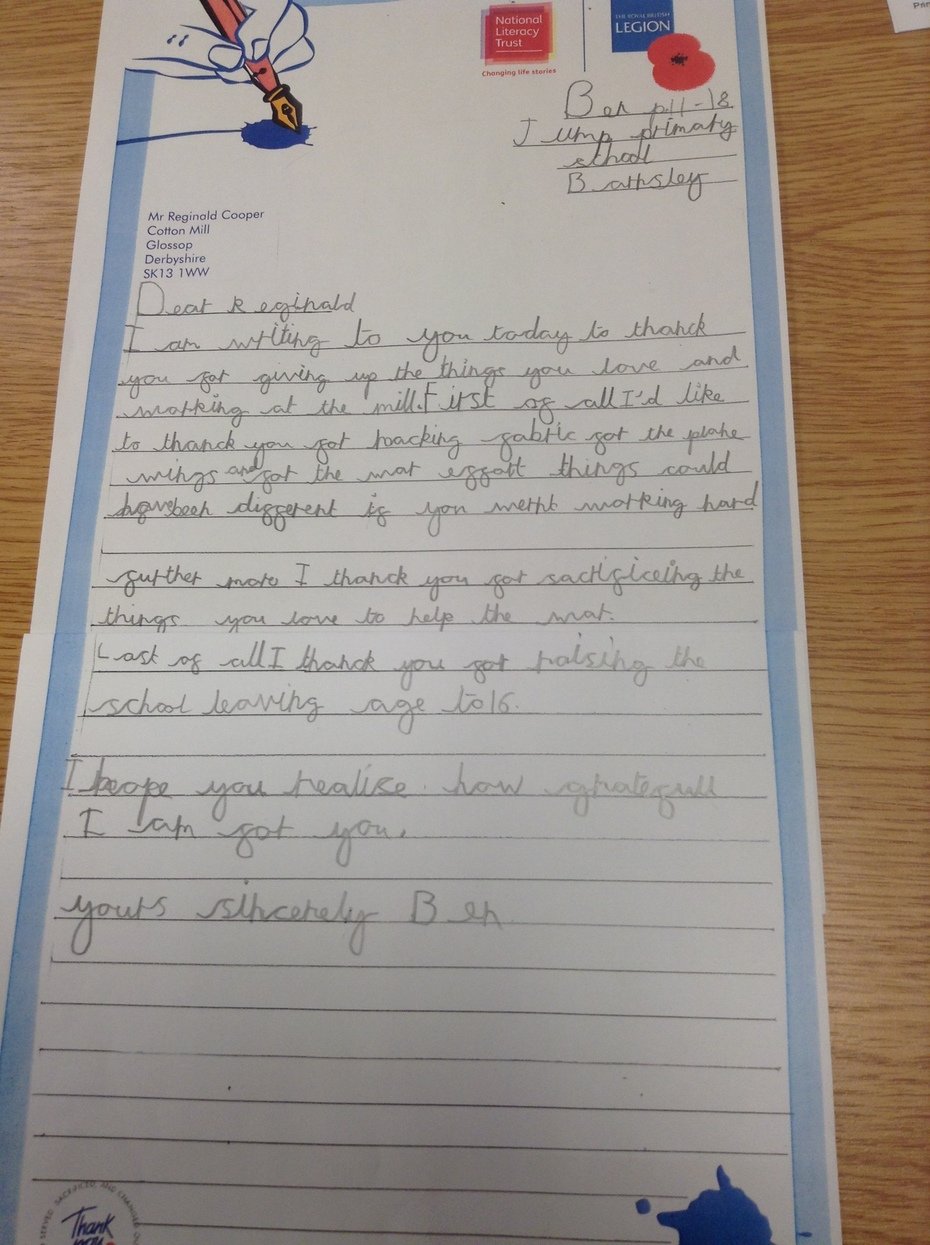 Prin
National
Literacy
Trust
Changing life stories
THE ROYAL BRITISH
LEGION
Ben p.11-18
Jump primary
school
Barnsley
Mr Reginald Cooper
Cotton Mill
Glossop
Derbyshire
SK13 1WW
Dear Reginald
I am writing to you today to thanck
you for giving up the things you love and
working at the mill. First of all I'd like
to thanck you for fabric for the plane
wings and for the war effort things could
have been different if you wernt working hard
further more I thanck you for sacrificeing the
things you love to help the war.
Last of all I thanck you for raising the
school leaving age to 16.
I hope you realise how gratefull
I am for you.
yours sincerely Ben
SERVED SACRIFICED, AND CHANGED
Thank
you